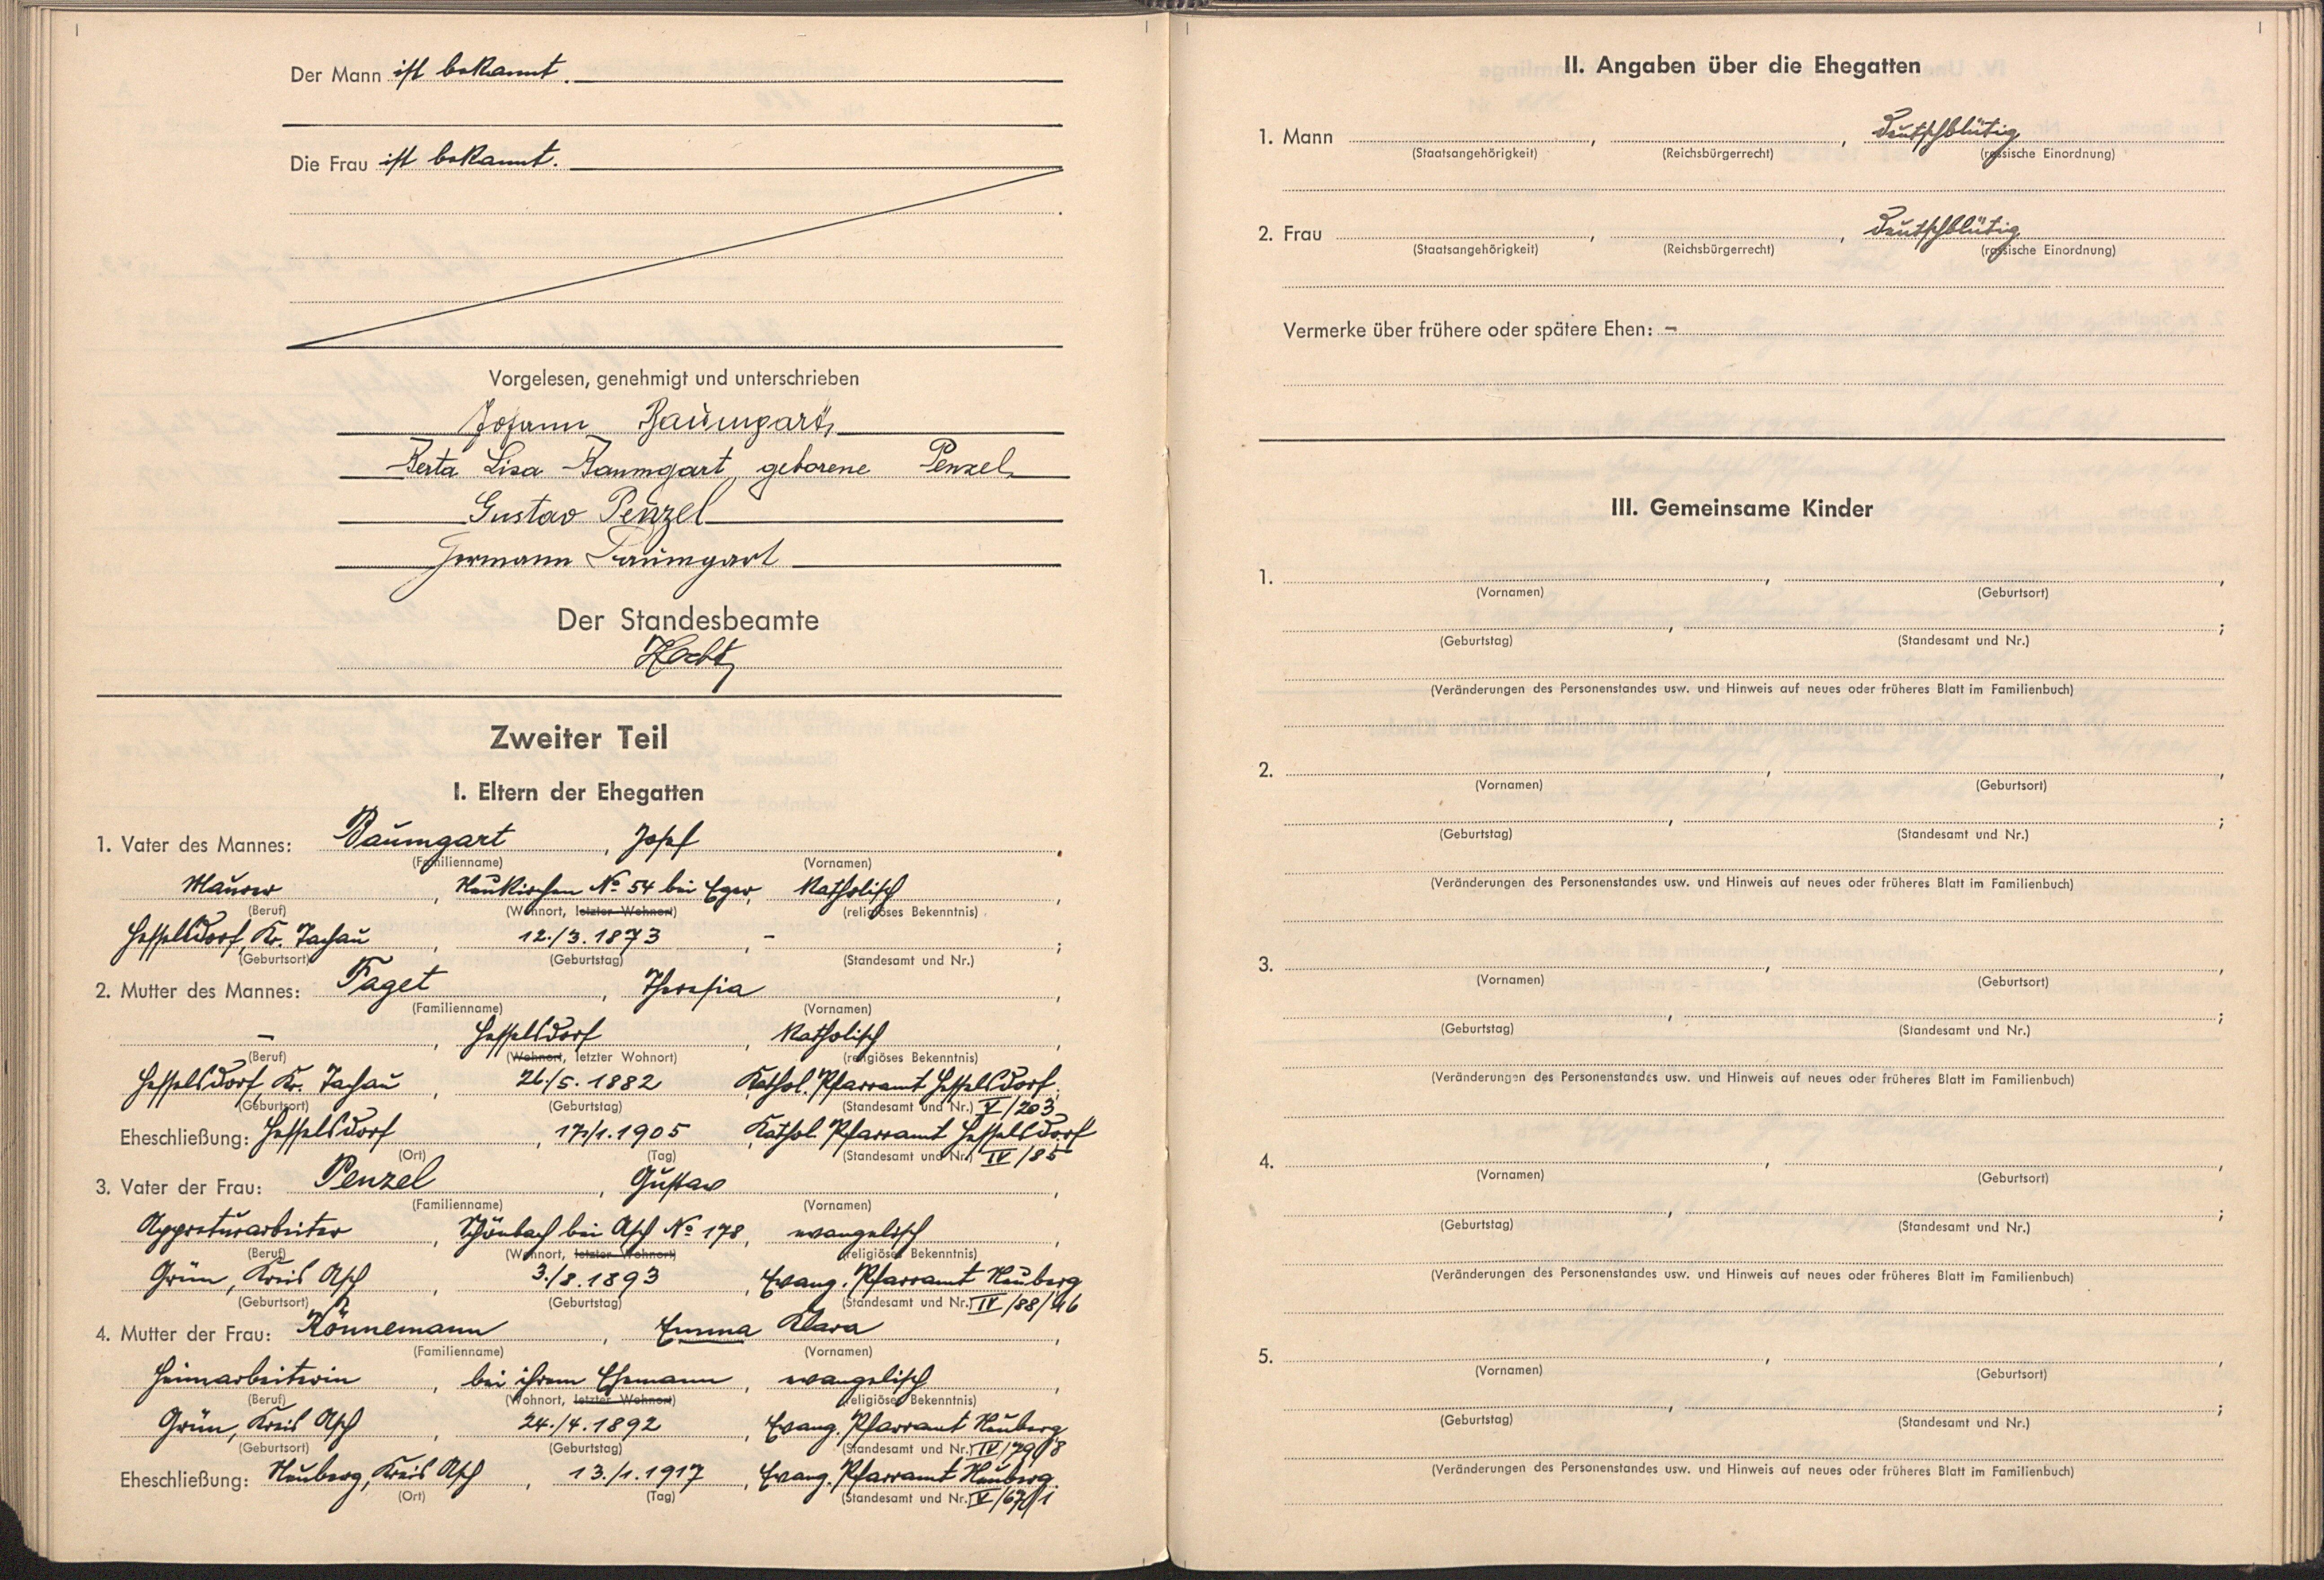 Der Mann ist bekannt.
Die Frau ist bekannt.
Vorgelesen, genehmigt und unterschrieben
Johann Baumgart
Berta Lisa Baumgart, geborene Penzel
Gustav Penzel
Hermann Baumgart
Der Standesbeamte
Zweiter Teil
I. Eltern der Ehegatten
1. Vater des Mannes: Baumgart, Josef
(Familienname) (Vornamen)
Maurer, Neukirchen No 54 bei Eger, Katholisch,
(Beruf) (Wohnort, letzter Wohnort) (religiöses Bekenntnis)
Hesselsdorf, Kr. Tachau, 12./3.1873, -;
(Geburtsort) (Geburtstag) (Standesamt und Nr.)
2. Mutter des Mannes: Faget, Theresia,
(Familienname) (Vornamen)
-, Hesselsdorf, Katholisch,
(Beruf) (Wohnort, letzter Wohnort) (religiöses Bekenntnis)
Hesselsdorf, Kr. Tachau, 26./5.1882, Kathol. Pfarramt Hesselsdorf.
(Geburtsort) (Geburtstag) (Standesamt und Nr.) V/203
Eheschließung: Hesselsdorf, 17./1.1905, Kathol. Pfarramt Hesselsdorf
(Ort) (Tag) (Standesamt und Nr.) IV/85
3. Vater der Frau: Penzel, Gustav,
(Familienname) (Vornamen)
Appreturarbeiter, Schönbach bei Asch No 178, evangelisch,
(Beruf) (Wohnort, letzter Wohnort) (religiöses Bekenntnis)
Grün, Kreis Asch, 3./8.1893, Evang. Pfarramt Neuberg
(Geburtsort) (Geburtstag) (Standesamt und Nr.) IV/88/46
4. Mutter der Frau: Künnemann, Emma Klara,
(Familienname) (Vornamen)
Heimarbeiterin, bei ihrem Ehemann, evangelisch,
(Beruf) (Wohnort, letzter Wohnort) (religiöses Bekenntnis)
Grün, Kreis Asch, 24./4.1892, Evang. Pfarramt Neuberg
(Geburtsort) (Geburtstag) (Standesamt und Nr.) IV/79/8
Eheschließung: Neuberg, Kreis Asch, 13./1.1917, Evang. Pfarramt Neuberg.
(Ort) (Tag) (Standesamt und Nr.) V/67/1
II. Angaben über die Ehegatten
1. Mann , , deutschblütig
(Staatsangehörigkeit) (Reichsbürgerrecht) (rassische Einordnung)
2. Frau , , deutschblütig
(Staatsangehörigkeit) (Reichsbürgerrecht) (rassische Einordnung)
Vermerke über frühere oder spätere Ehen: -
III. Gemeinsame Kinder
1. , ,
(Vornamen) (Geburtsort)
, ;
(Geburtstag) (Standesamt und Nr.)
(Veränderungen des Personenstandes usw. und Hinweis auf neues oder früheres Blatt im Familienbuch)
2. , ,
(Vornamen) (Geburtsort)
, ;
(Geburtstag) (Standesamt und Nr.)
(Veränderungen des Personenstandes usw. und Hinweis auf neues oder früheres Blatt im Familienbuch)
3. , ,
(Vornamen) (Geburtsort)
, ;
(Geburtstag) (Standesamt und Nr.)
(Veränderungen des Personenstandes usw. und Hinweis auf neues oder früheres Blatt im Familienbuch)
4. , ,
(Vornamen) (Geburtsort)
, ;
(Geburtstag) (Standesamt und Nr.)
(Veränderungen des Personenstandes usw. und Hinweis auf neues oder früheres Blatt im Familienbuch)
5. , ,
(Vornamen) (Geburtsort)
, ;
(Geburtstag) (Standesamt und Nr.)
(Veränderungen des Personenstandes usw. und Hinweis auf neues oder früheres Blatt im Familienbuch)